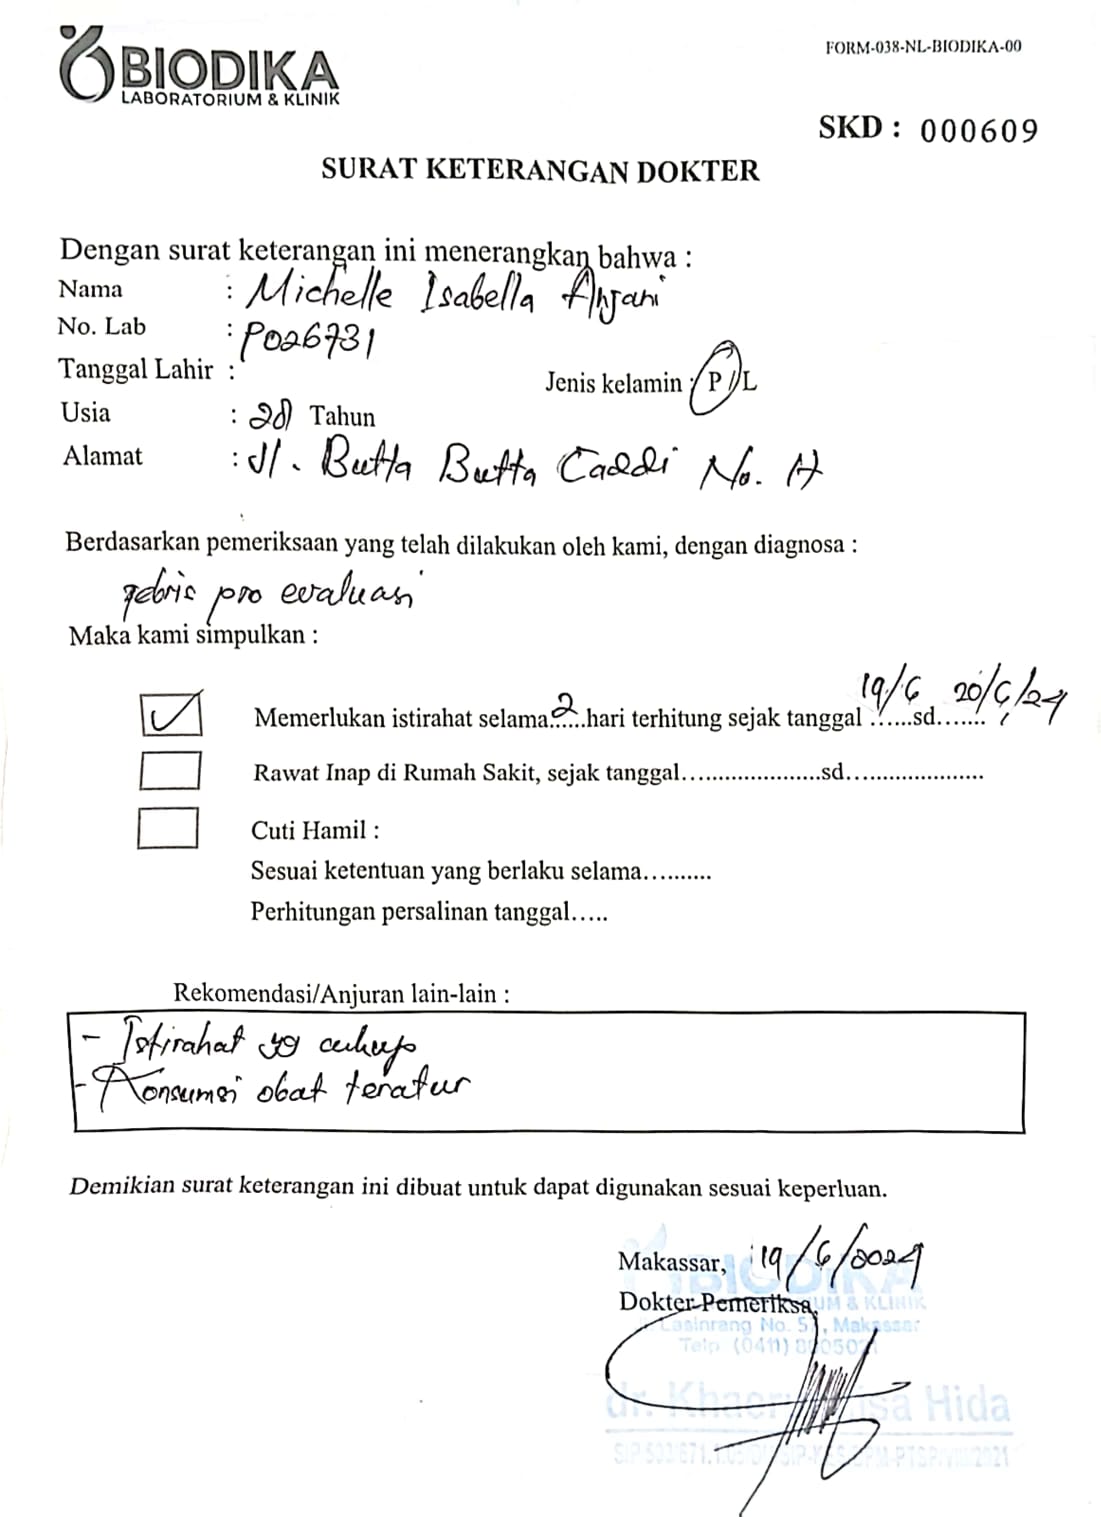 BIODIKA
LABORATORIUM & KLINIK
FORM-038-NL-BIODIKA-00
SKD : 000609
SURAT KETERANGAN DOKTER
Dengan surat keterangan ini menerangkan bahwa :
Nama : Michelle Isabella Anjani
No. Lab : P026731
Tanggal Lahir : Jenis kelamin : P / L
Usia : 28 Tahun
Alamat : Jl. Butta Butta Caddi No. H
Berdasarkan pemeriksaan yang telah dilakukan oleh kami, dengan diagnosa :
febris pro evaluasi
Maka kami simpulkan :
Memerlukan istirahat selama 2 hari terhitung sejak tanggal 19/6 sd 20/6/24
Rawat Inap di Rumah Sakit, sejak tanggal.....................sd.....................
Cuti Hamil :
Sesuai ketentuan yang berlaku selama..........
Perhitungan persalinan tanggal.....
Rekomendasi/Anjuran lain-lain :
- Istirahat yg cukup
- Konsumsi obat teratur
Demikian surat keterangan ini dibuat untuk dapat digunakan sesuai keperluan.
Makassar, 19/6/2024
BIODIKA
Dokter Pemeriksa,
UM & KLINIK
Lasinrang No. 5 , Makassar
Telp (0411)
dr. Hida